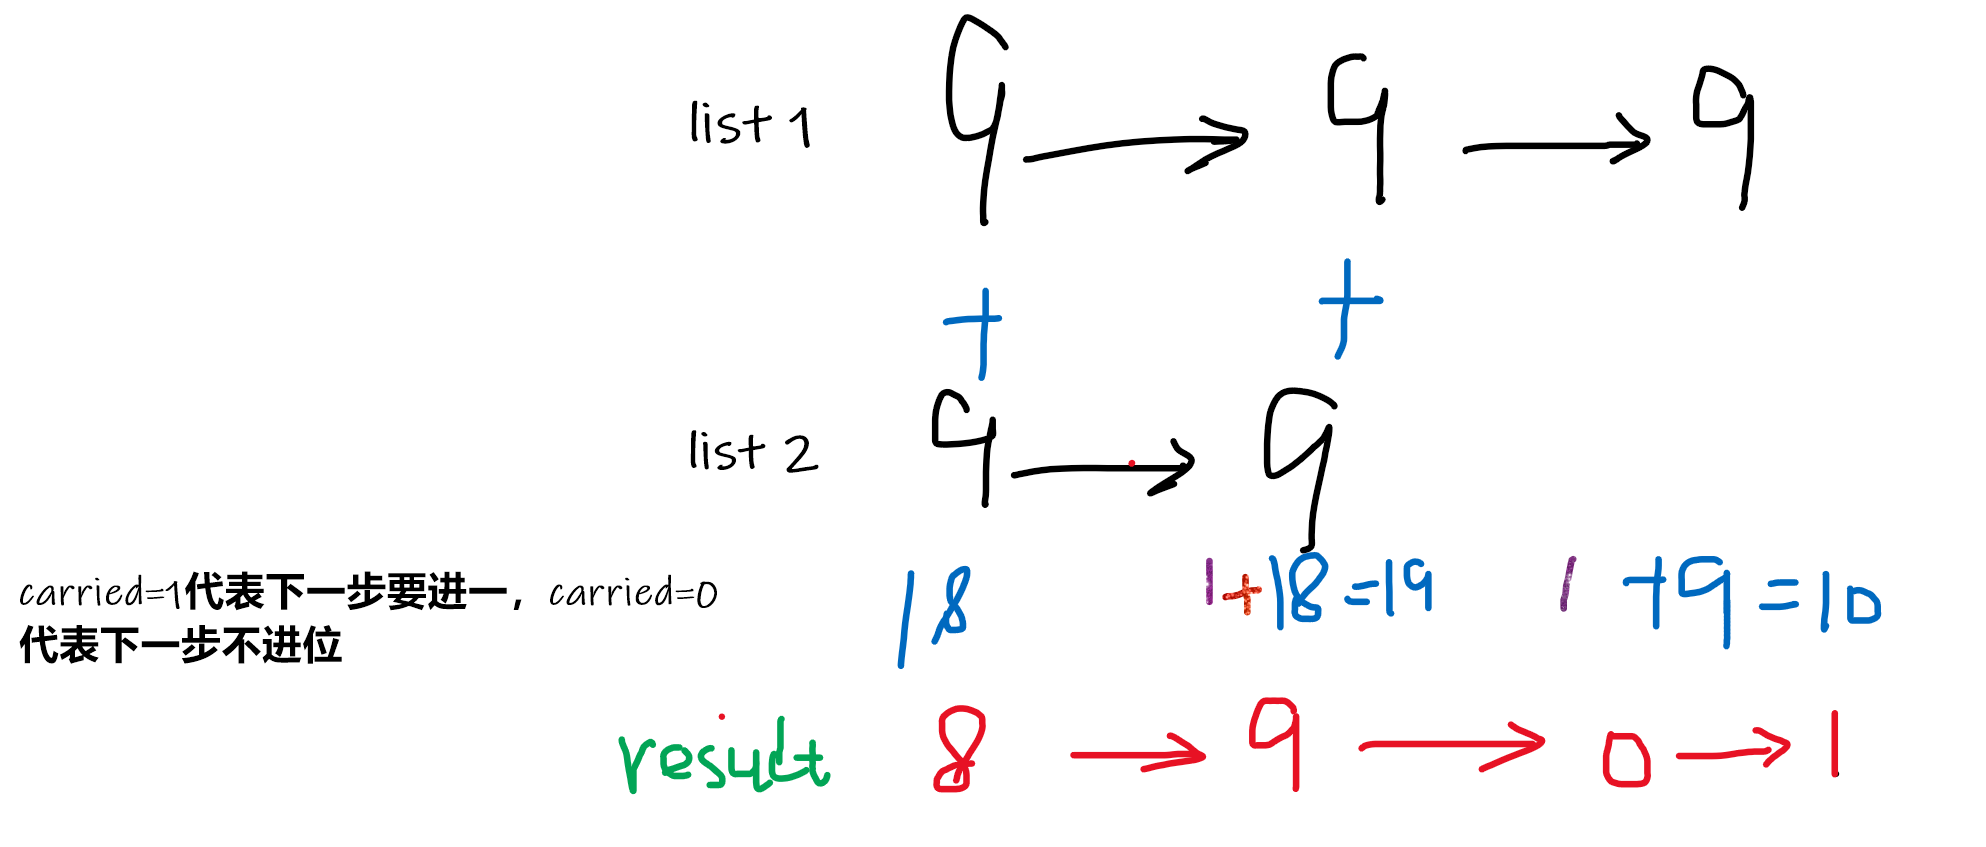 list 1 9 → 9 → 9
+ +
list 2 9 → 9
carried=1代表下一步要进一，carried=0
代表下一步不进位
18 1+18=19 1+9=10
result 8 → 9 → 0 → 1